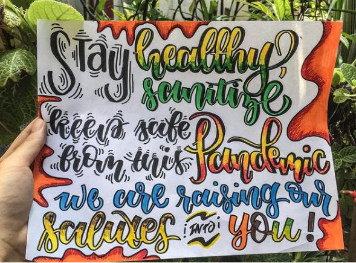 Stay healthy,
sanitize
keep safe
from this Pandemic
we are raising our
salutes INTO you!